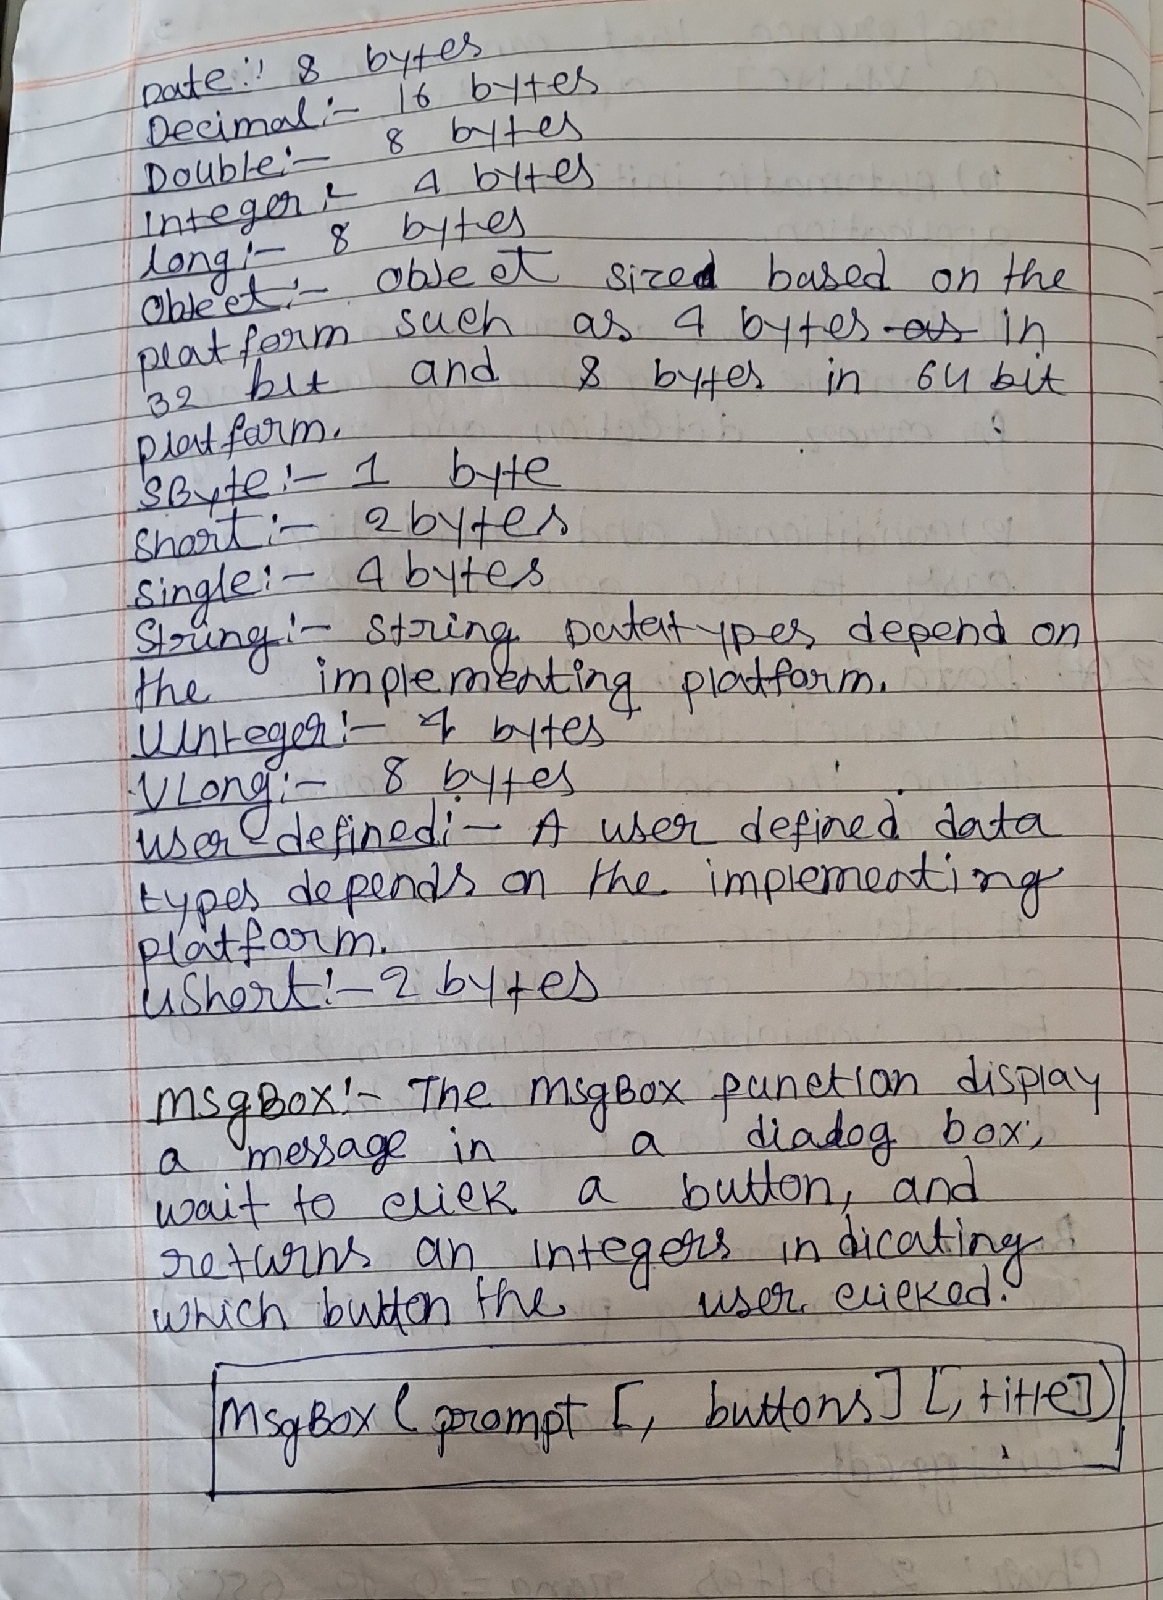 Date:- 8 bytes
Decimal:- 16 bytes
Double:- 8 bytes
Integer:- 4 bytes
Long:- 8 bytes
Object:- Object sized based on the
platform such as 4 bytes as in
32 bit and 8 bytes in 64 bit
platform.
SByte:- 1 byte
Short:- 2 bytes
Single:- 4 bytes
String:- String Datatypes depend on
the implementing platform.
UInteger:- 4 bytes
ULong:- 8 bytes
User-defined:- A user defined data
types depends on the implementing
platform.
UShort:- 2 bytes
MsgBox:- The MsgBox function display
a message in a diadog box,
wait to click a button, and
returns an integers indicating
which button the user clicked.
MsgBox ( prompt [, buttons] [, title])